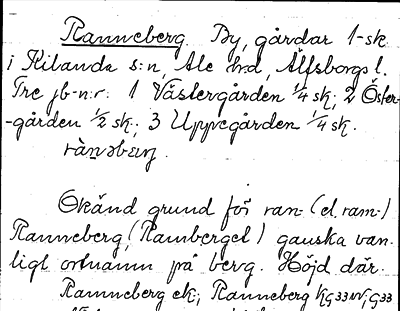 Ranneberg. By, gårdar 1 sk
i Kilanda s:n, Ale hrd, Älfsborgs l.
Tre jb-n:r: 1 Västergården 1/4 sk; 2 Öster-
-gården 1/2 sk; 3 Uppegården 1/4 sk.
Okänd grund för ran- (el. ram-)
Ranneberg, (Rambergel) ganska van
ligt ortnamn på berg. Höjd där.
Ranneberg ek; Ranneberg KG33NV; G33